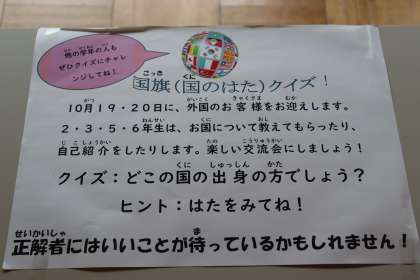 他の学年の人も
ぜひクイズにチャレ
ンジしてね！
国旗（国のはた）クイズ！
10月19・20日に、外国のお客様をお迎えします。
2・3・5・6年生は、お国について教えてもらったり、
自己紹介をしたりします。楽しい交流会にしましょう！
クイズ：どこの国の出身の方でしょう？
ヒント：はたをみてね！
正解者にはいいことが待っているかもしれません！